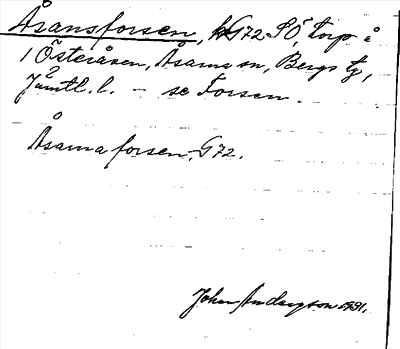 Åsansforsen, G72 SÖ, torp å
1 Österåsen, Åsarna sn, Bergs tg,
Jämtl. l. – se Forsen.
Åsarna forsen, G72.
Johan Andersson 1931.